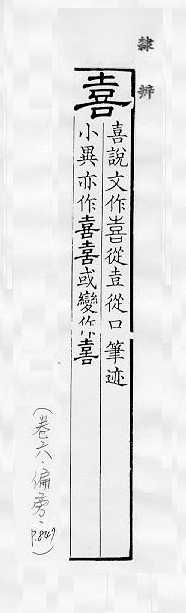 隸辨
喜
喜說文作喜從壴從口筆迹
小異亦作喜喜或變作喜
(卷六·偏旁·P.849)